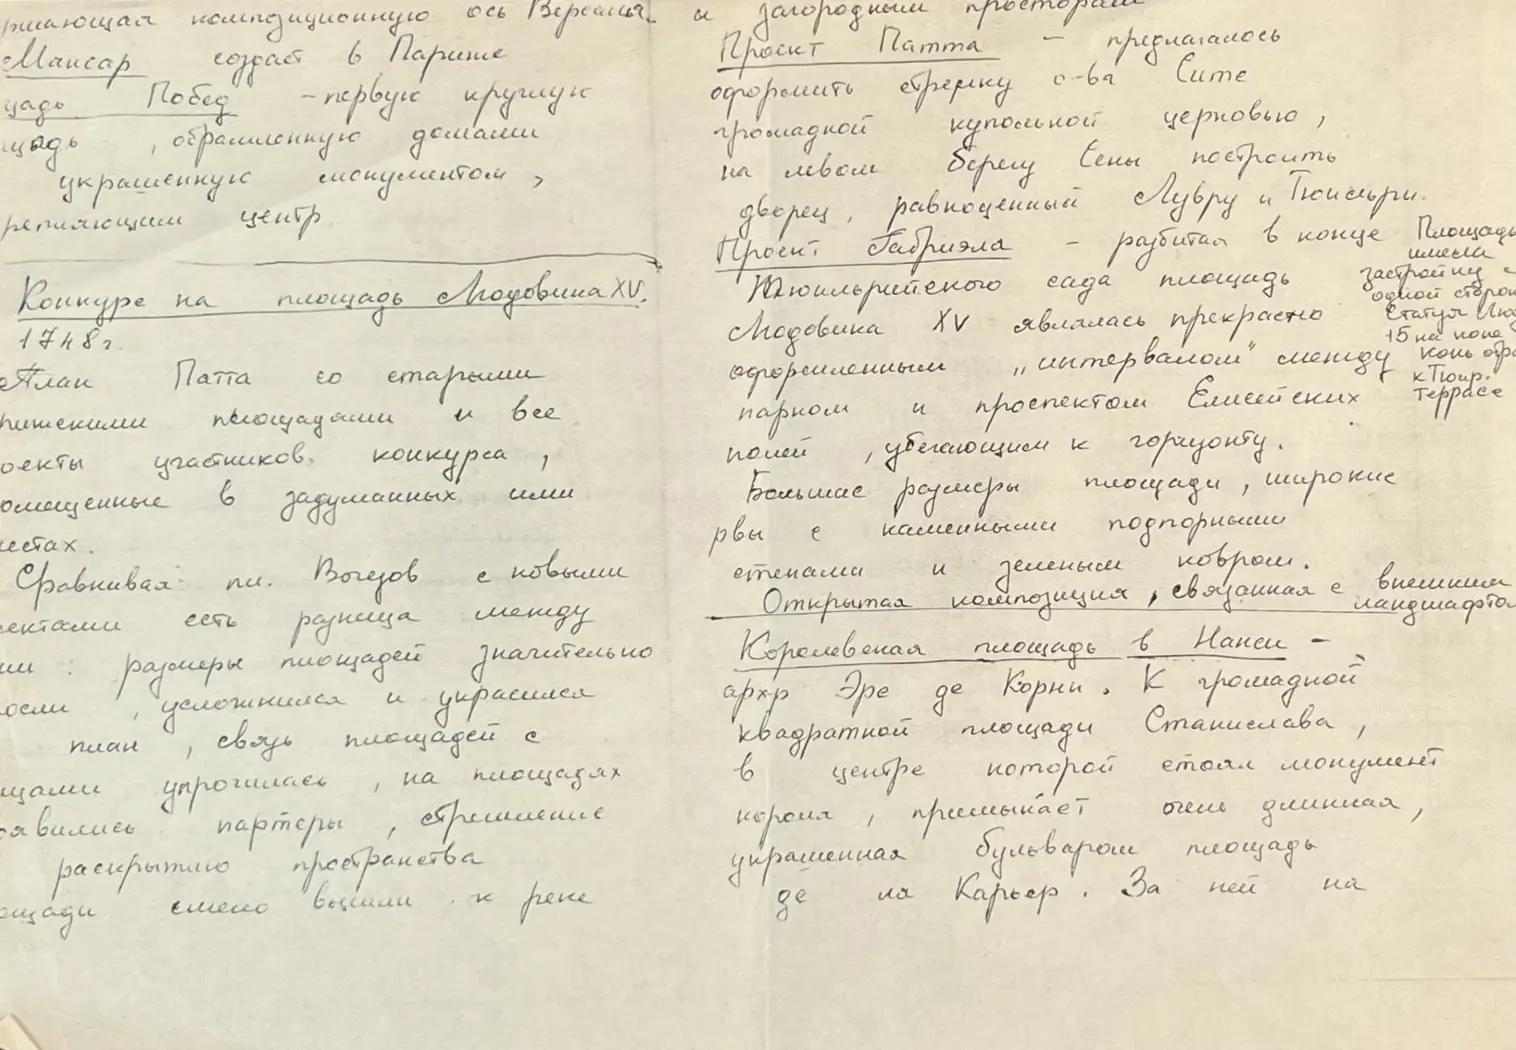 ршающая композиционную ось Версаля.
Мансар создаёт в Париже
щадь Побед - первую круглую
щадь, обрамленную домами
украшенную монументом,
репляющим центр.
Конкурс на площадь Людовика XV.
1748г.
План Патта со старыми
рижскими площадями и все
оекты участников конкурса,
омещенные в задуманных ими
местах.
Сравнивая пл. Вогезов с новыми
ектами есть разница между
ими: размеры площадей значительно
осли, усложнился и украсился
план, связь площадей с
ицами упрочилась, на площадях
оявились партеры, стремление
раскрытию пространства
ощади смело вышли к реке
и загородным просторам
Проект Патта - предлагалось
оформить стрелку о-ва Сите
громадной купольной церковью,
на левом берегу Сены построить
дворец, равноценный Лувру и Тюильри.
Проект Габриэла - разбитая в конце
Тюильрийского сада площадь
Людовика XV являлась прекрасно
оформленным „интервалом" между
парком и проспектом Елисейских
полей, убегающим к горизонту.
Большие размеры площади, широкие
рвы с каменными подпорными
стенами и зеленым ковром.
Открытая композиция, связанная с внешним
ландшафтом
Площадь
имела
застройку с
одной сторон
Статуя Лю
15 на коне
конь обра
к Тюир.
террасе
Королевская площадь в Нанси -
архр Эре де Корни. К громадной
квадратной площади Станислава,
в центре которой стоял монумент
короля, примыкает очень длинная,
украшенная бульваром площадь
де ла Карьер. За ней на